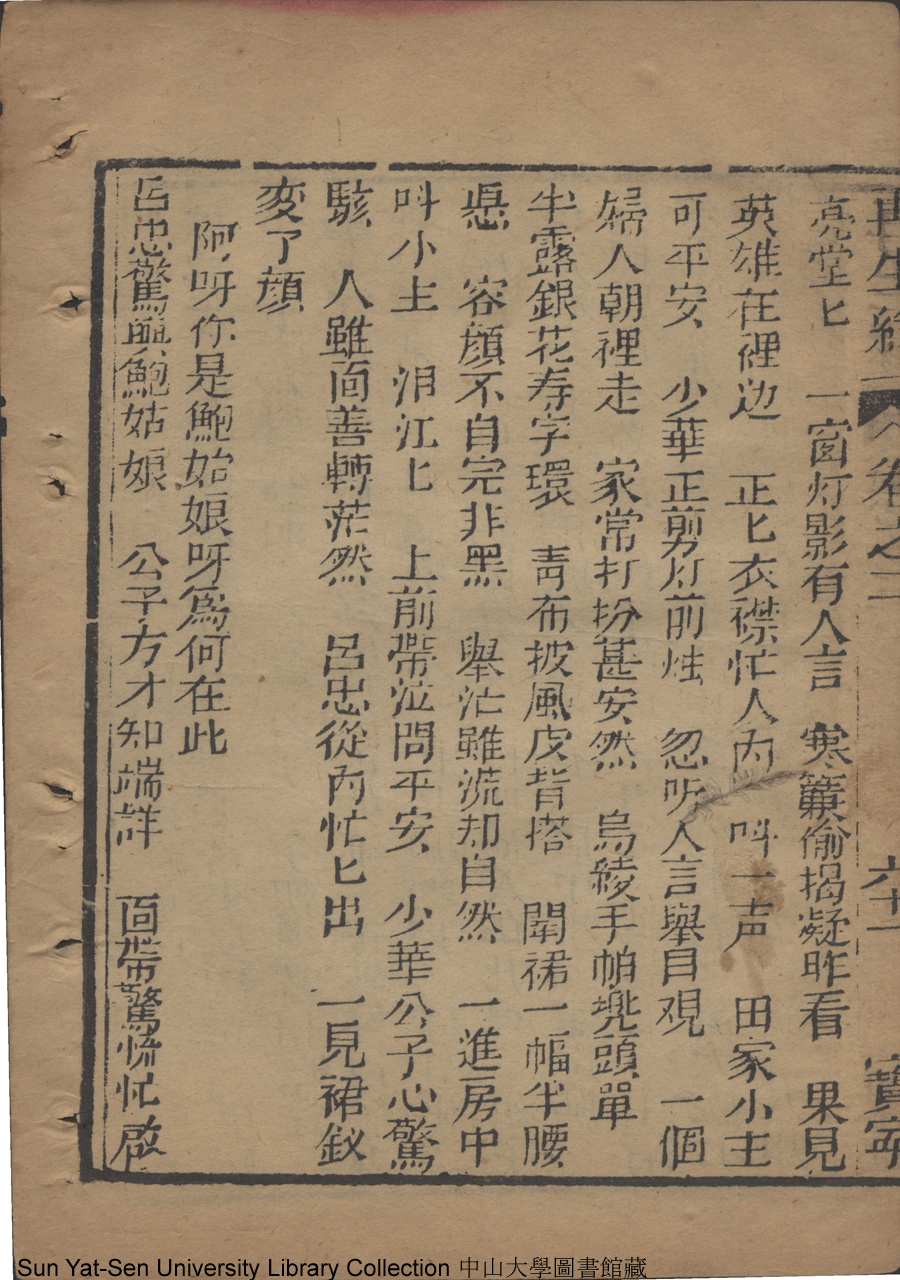 再生緣 卷之二 六十一 寧
亮堂匕 一窗灯影有人言 寒簾偷揭凝眸看 果見
英雄在裡边 正匕衣襟忙人內 叫一声 田家小主
可平安 少華正剪灯前烛 忽听人言舉目观 一個
婦人朝裡走 家常打扮甚安然 烏綾手帕兠頭單
半露銀花寿字環 青布披風皮背搭 闈裙一幅半腰
懸 容顔不自完非黑 舉茫雖流却自然 一進房中
叫小主 泪江匕 上前帶泣問平安 少華公子心驚
駭 人雖面善轉茫然 呂忠從內忙匕出 一見裙釵
变了顔
阿呀你是鮑姑娘呀爲何在此
呂忠驚 鮑姑娘 公子方才知端詳 面帶驚慌忙啟
Sun Yat-Sen University Library Collection 中山大學圖書館藏